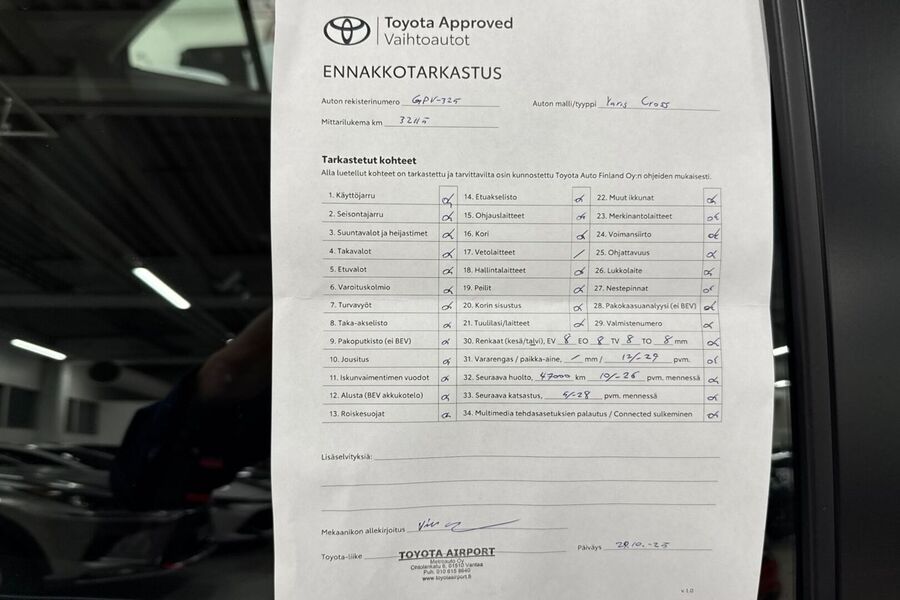 Toyota Approved
Vaihtoautot
ENNAKKOTARKASTUS
Auton rekisterinumero GPV-325 Auton malli/tyyppi Yaris Cross
Mittarilukema km 32115
Tarkastetut kohteet
Alla luetellut kohteet on tarkastettu ja tarvittavilta osin kunnostettu Toyota Auto Finland Oy:n ohjeiden mukaisesti.
1. Käyttöjarru ok 14. Etuakselisto ok 22. Muut ikkunat ok
2. Seisontajarru ok 15. Ohjauslaitteet ok 23. Merkinantolaitteet ok
3. Suuntavalot ja heijastimet ok 16. Kori ok 24. Voimansiirto ok
4. Takavalot ok 17. Vetolaitteet / 25. Ohjattavuus ok
5. Etuvalot ok 18. Hallintalaitteet ok 26. Lukkolaite ok
6. Varoituskolmio ok 19. Peilit ok 27. Nestepinnat ok
7. Turvavyöt ok 20. Korin sisustus ok 28. Pakokaasuanalyysi (ei BEV) ok
8. Taka-akselisto ok 21. Tuulilasi/laitteet ok 29. Valmistenumero ok
9. Pakoputkisto (ei BEV) ok 30. Renkaat (kesä/talvi), EV 8 EO 8 TV 8 TO 8 mm ok
10. Jousitus ok 31. Vararengas / paikka-aine, / mm / 12/-29 pvm. ok
11. Iskunvaimentimen vuodot ok 32. Seuraava huolto, 47000 km 10/-26 pvm. mennessä ok
12. Alusta (BEV akkukotelo) ok 33. Seuraava katsastus, 5/-28 pvm. mennessä ok
13. Roiskesuojat ok 34. Multimedia tehdasasetuksien palautus / Connected sulkeminen ok
Lisäselvityksiä:
Mekaanikon allekirjoitus
Toyota-liike TOYOTA AIRPORT Päiväys 29.10.-25
Metroauto Oy
Ohtolankatu 6, 01510 Vantaa
Puh. 010 615 8640
www.toyotaairport.fi
v 1.0